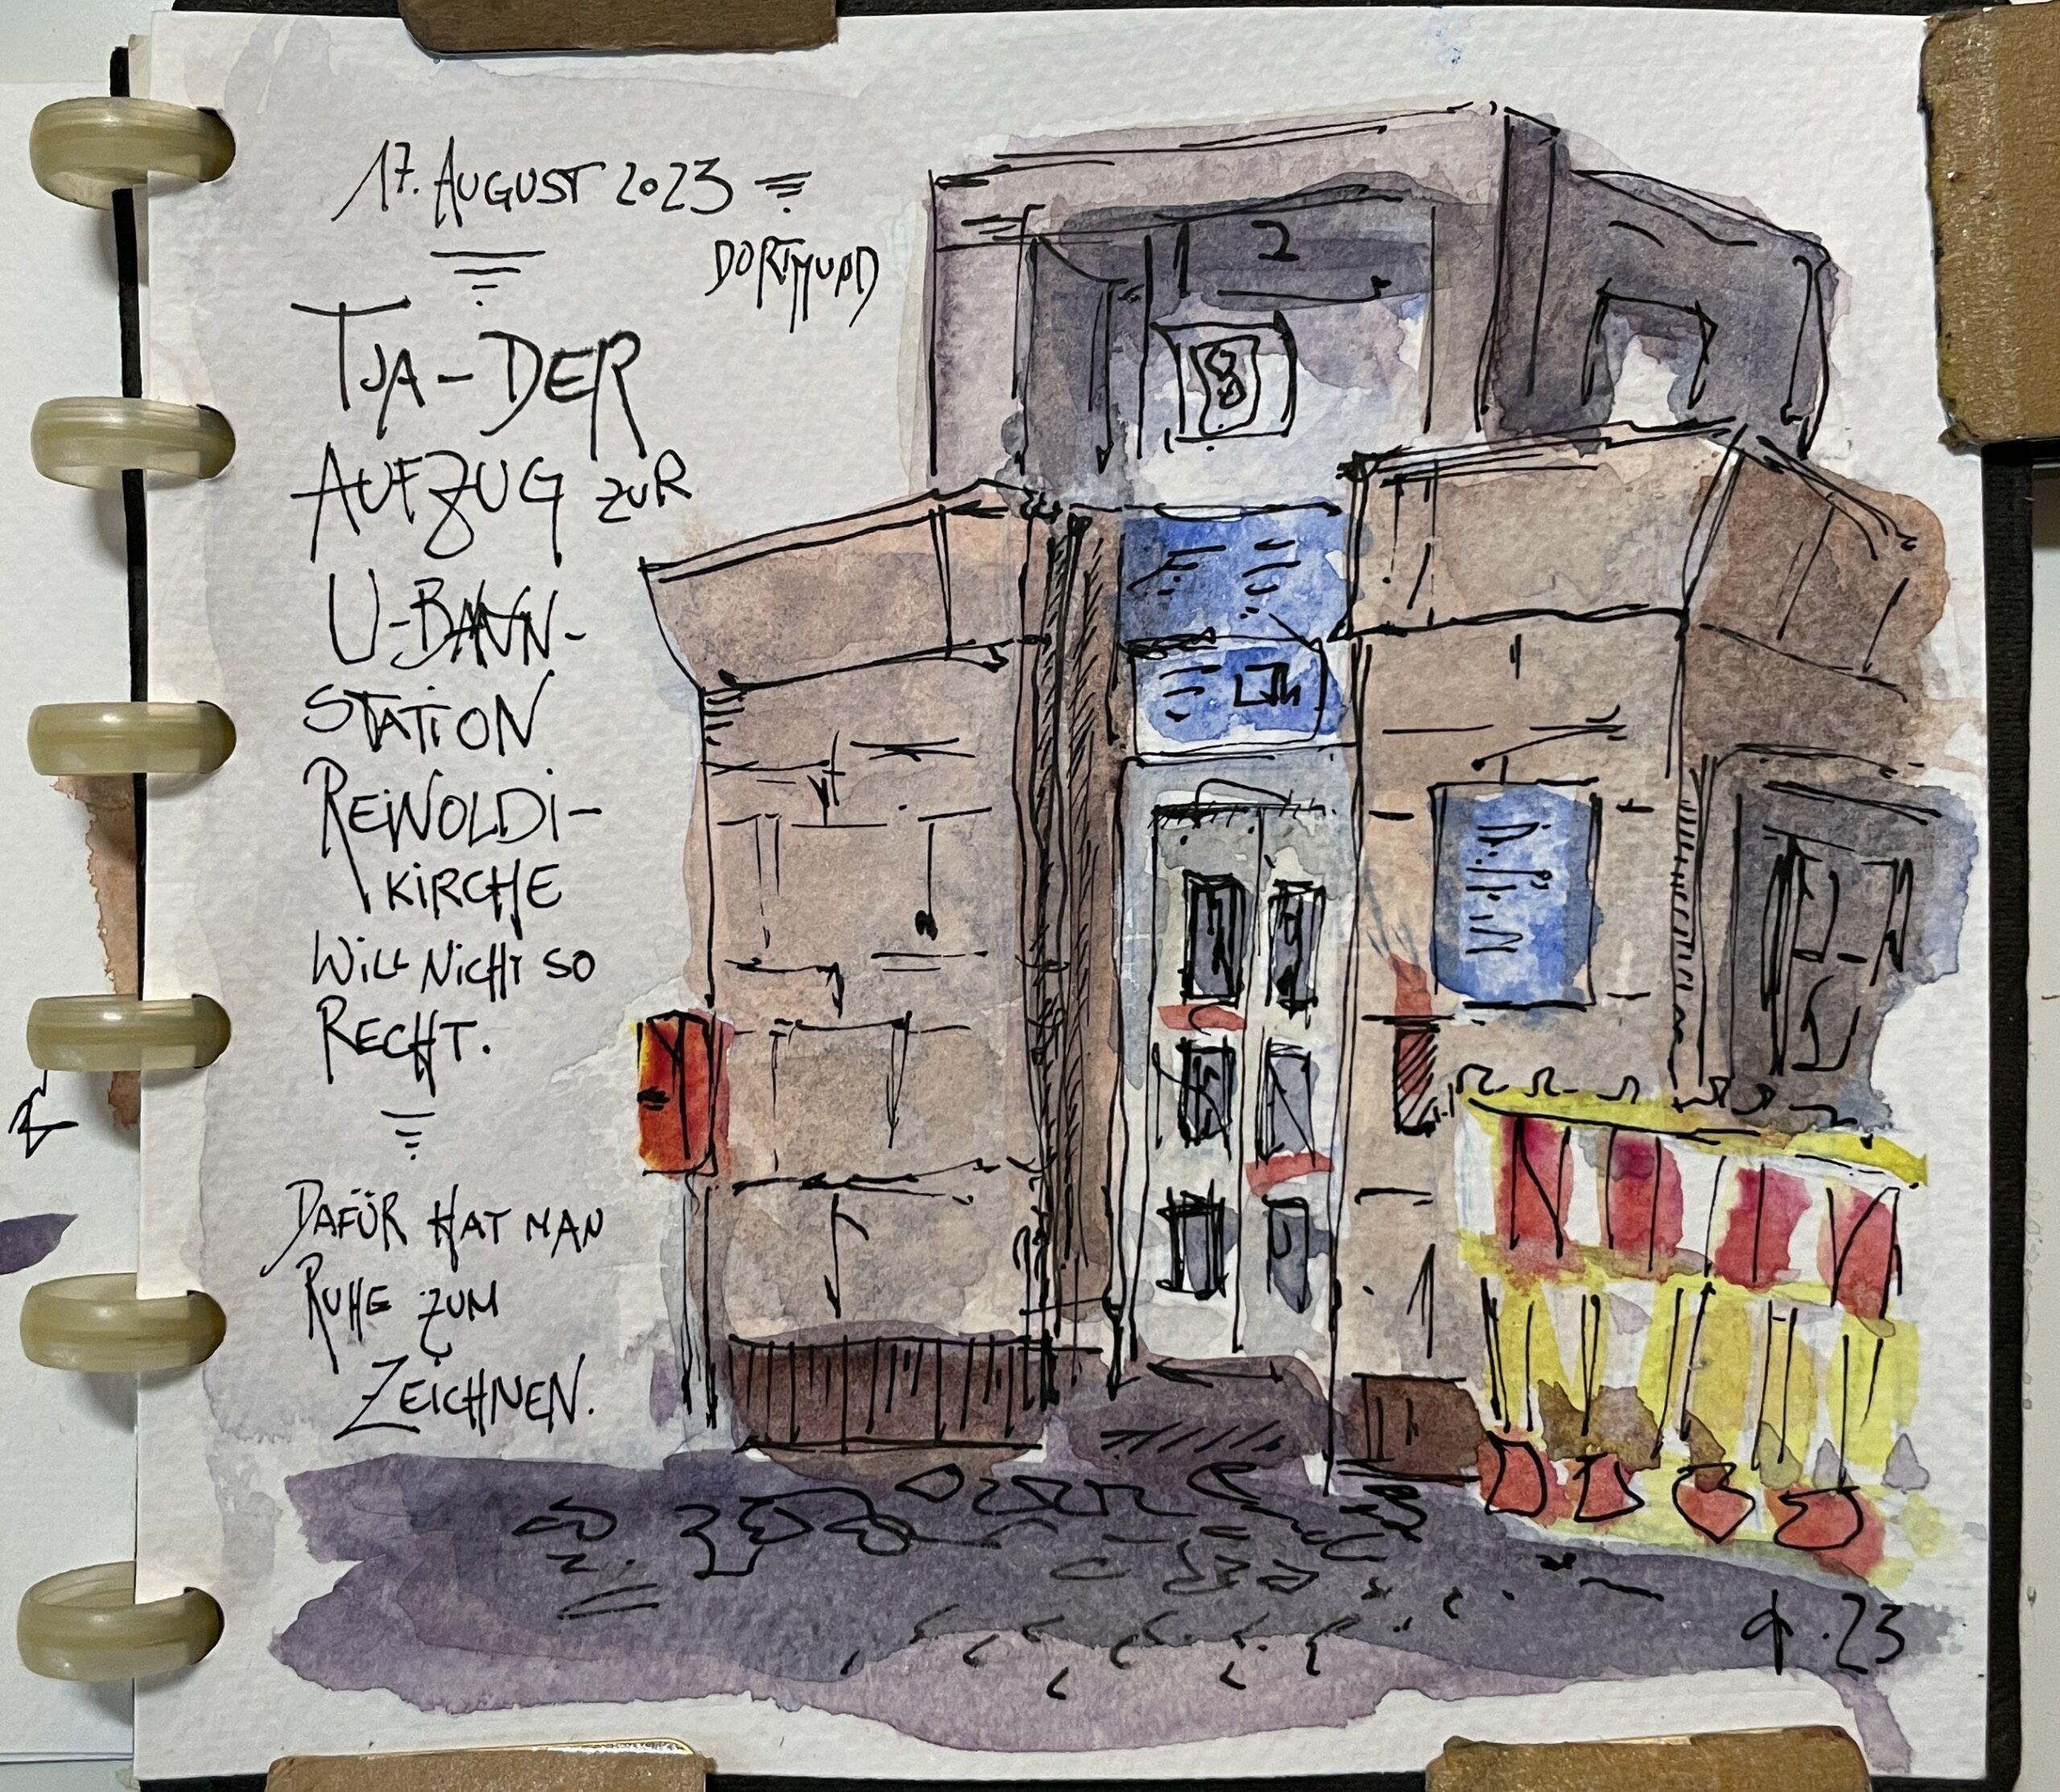 17. AUGUST 2023
DORTMUND
TJA - DER
AUFZUG ZUR
U-BAHN-
STATION
REINOLDI-
KIRCHE
WILL NICHT SO
RECHT.
DAFÜR HAT MAN
RUHE ZUM
ZEICHNEN.
2
8
.23